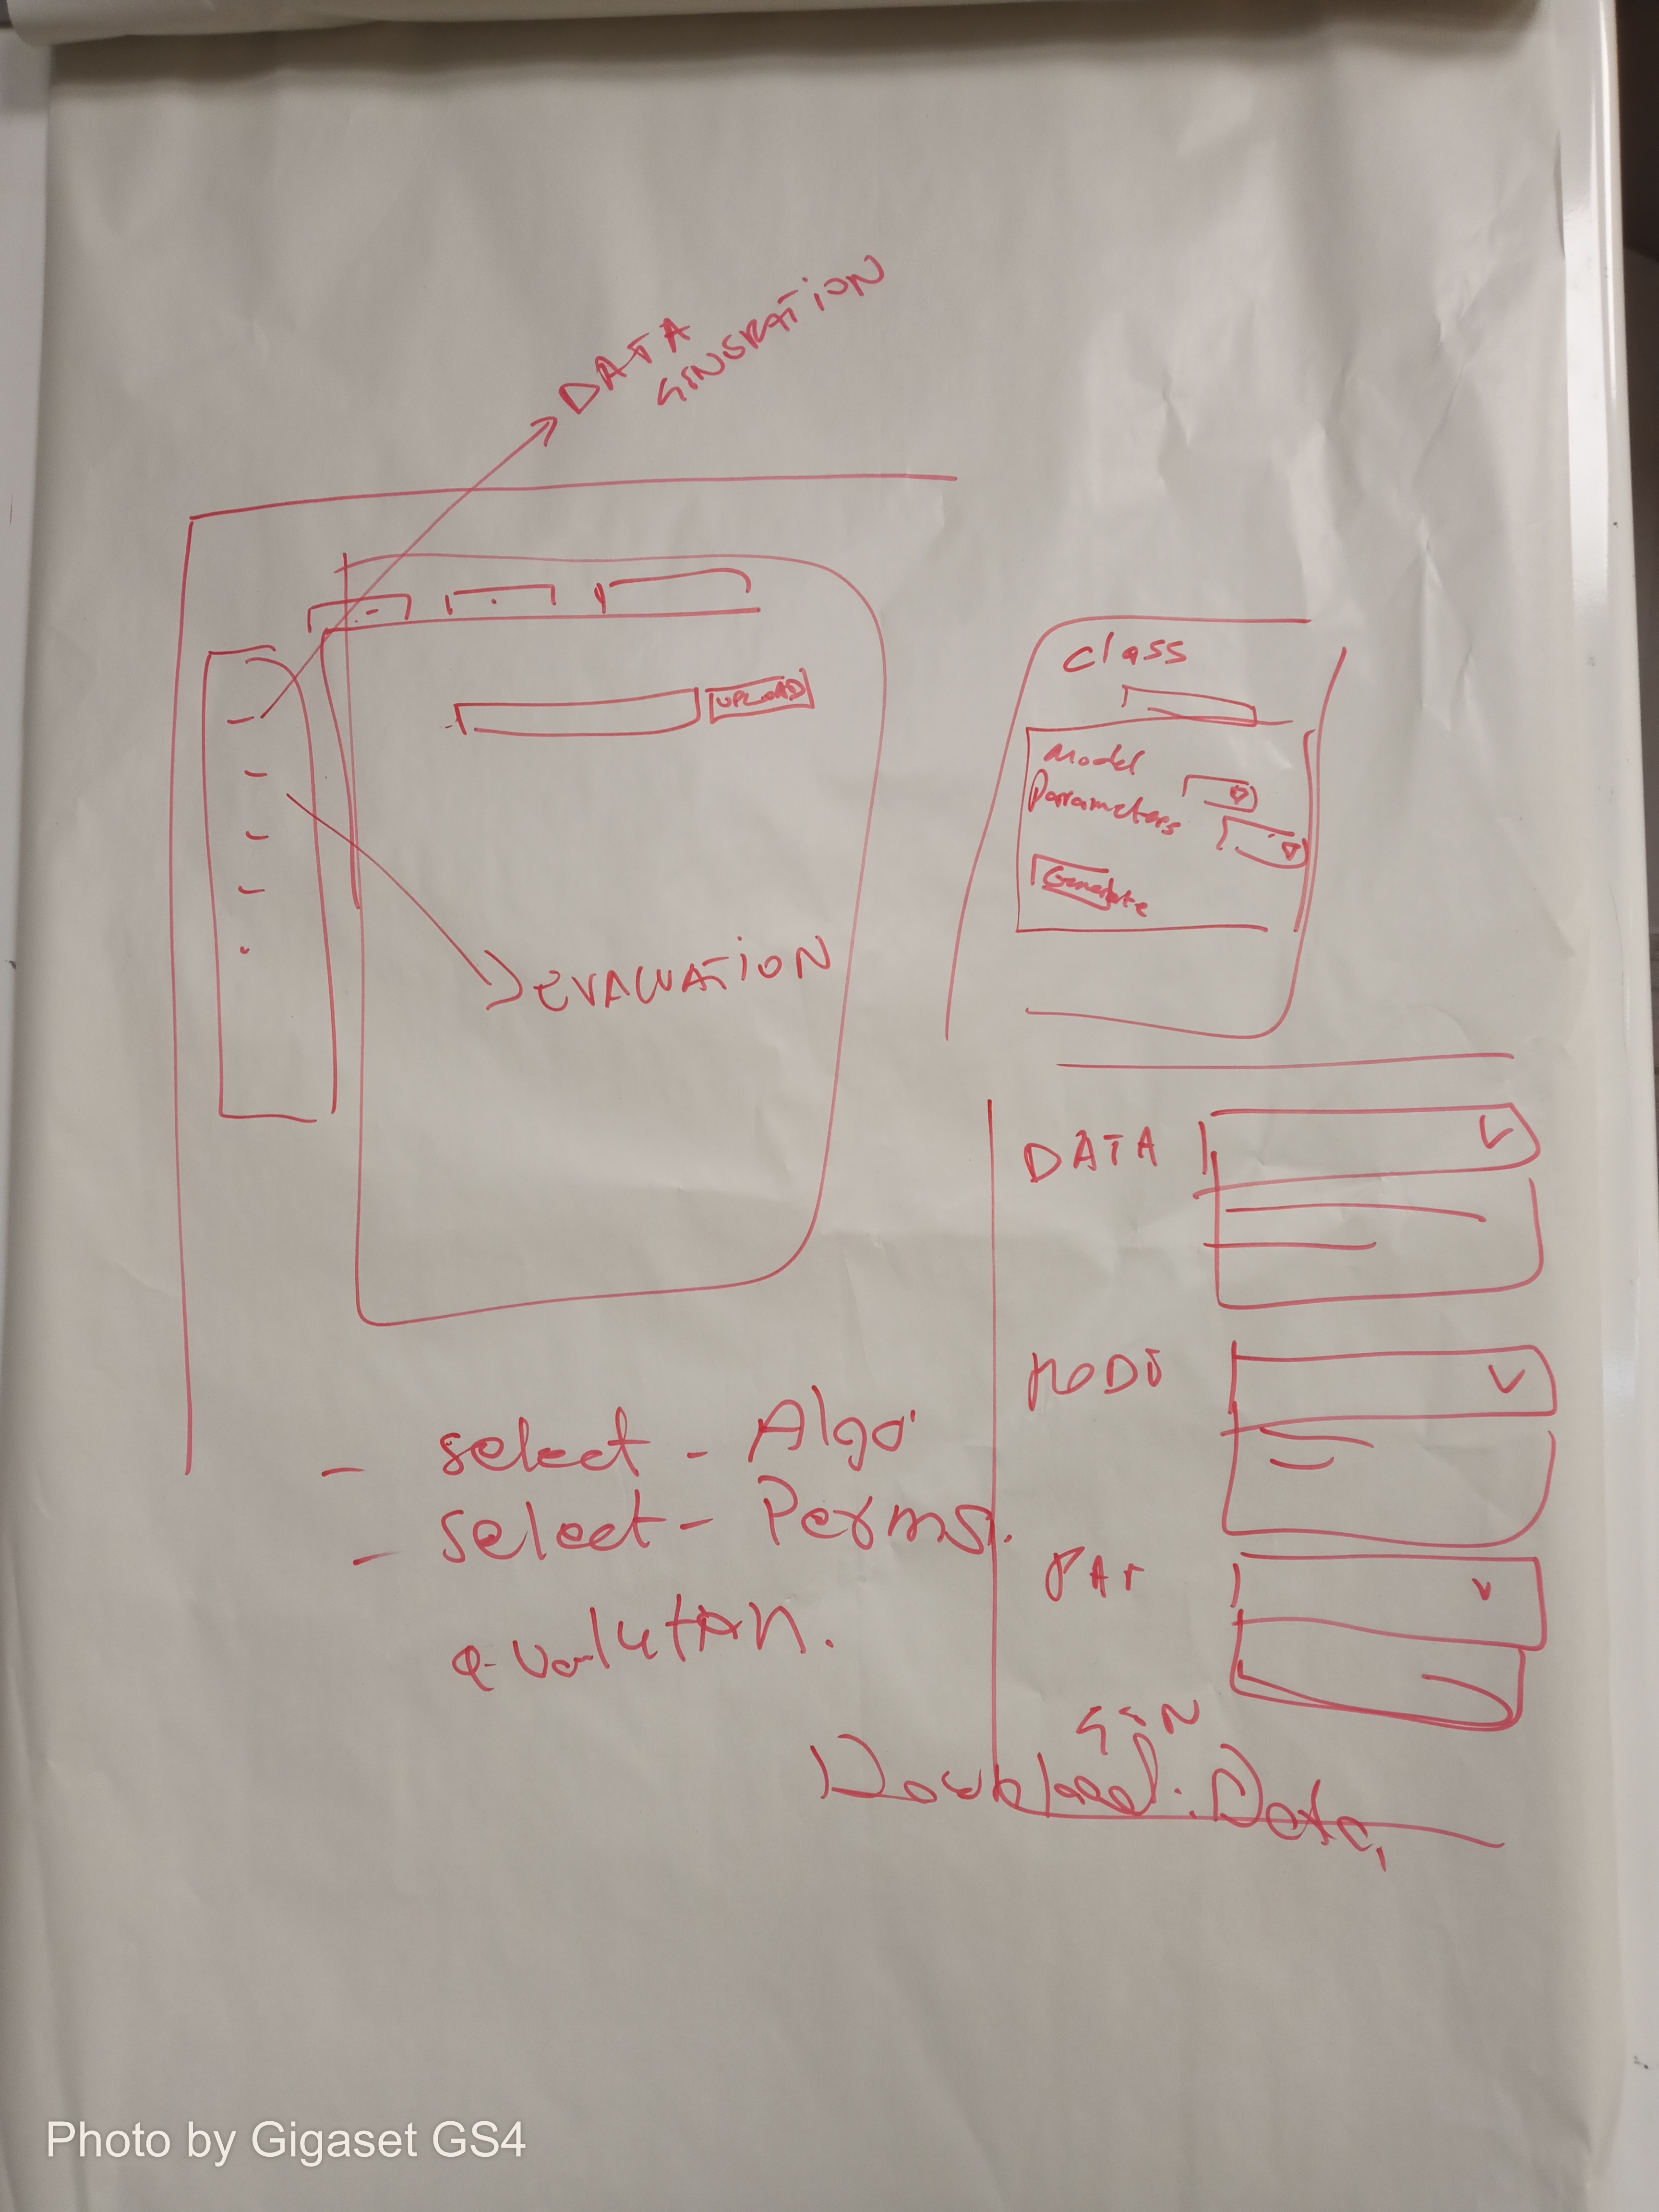 DATA
GENERATION
UPLOAD
EVALUATION
class
Model
Parameters
Generate
DATA
MODE
PAR
- select - Algo
- select - Perms.
evalutan.
GEN
Download Data,
Photo by Gigaset GS4